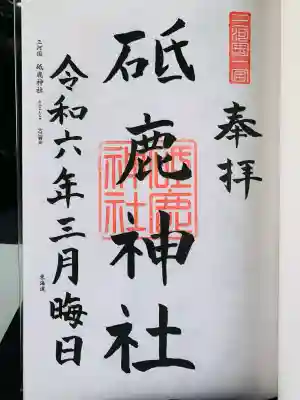 三河國一宮
奉拝
砥鹿神社
砥鹿神社
令和六年三月晦日
三河国 砥鹿神社
東海道